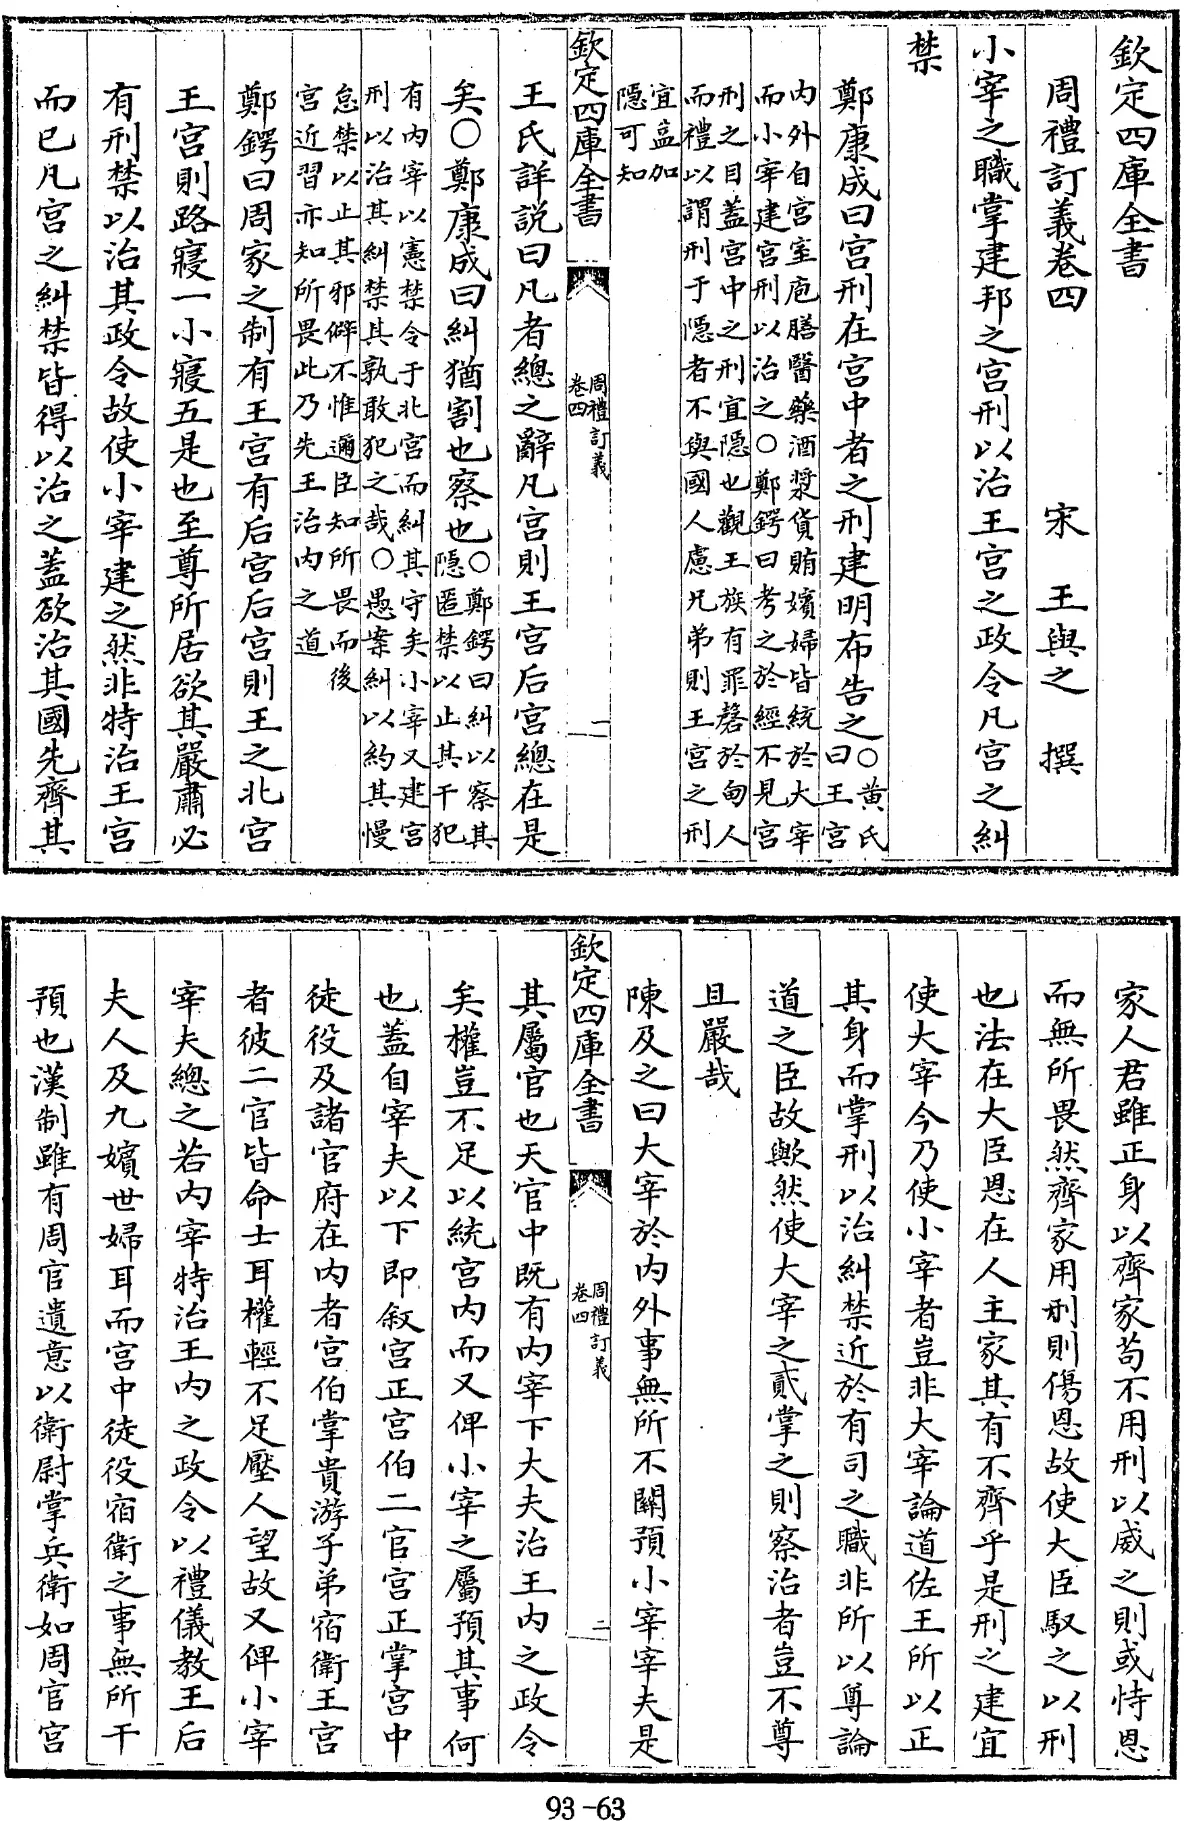 欽定四庫全書
周禮訂義卷四　宋　王與之　撰
小宰之職掌建邦之宮刑以治王宮之政令凡宮之糾
禁
鄭康成曰宮刑在宮中者之刑建明布告之○黃氏
曰王宮
內外自宮室庖膳醫藥酒漿貨賄嬪婦皆統於大宰
而小宰建宮刑以治之○鄭鍔曰考之於經不見宮
刑之目蓋宮中之刑宜隱也觀王族有罪磬於甸人
而禮以謂刑于隱者不與國人慮兄弟則王宮之刑
宜益加
隱可知
欽定四庫全書
周禮訂義
卷四
一
王氏詳說曰凡者總之辭凡宮則王宮后宮總在是
矣○鄭康成曰糾猶割也察也○鄭鍔曰糾以察其
隱匿禁以止其干犯
有內宰以憲禁令于北宮而糾其守矣小宰又建宮
刑以治其糾禁其孰敢犯之哉○愚案糾以約其慢
怠禁以止其邪僻不惟邇臣知所畏而後
宮近習亦知所畏此乃先王治內之道
鄭鍔曰周家之制有王宮有后宮后宮則王之北宮
王宮則路寢一小寢五是也至尊所居欲其嚴肅必
有刑禁以治其政令故使小宰建之然非特治王宮
而已凡宮之糾禁皆得以治之蓋欲治其國先齊其
家人君雖正身以齊家苟不用刑以威之則或恃恩
而無所畏然齊家用刑則傷恩故使大臣馭之以刑
也法在大臣恩在人主家其有不齊乎是刑之建宜
使大宰今乃使小宰者豈非大宰論道佐王所以正
其身而掌刑以治糾禁近於有司之職非所以尊論
道之臣故歟然使大宰之貳掌之則察治者豈不尊
且嚴哉
陳及之曰大宰於內外事無所不關預小宰宰夫是
欽定四庫全書
周禮訂義
卷四
二
其屬官也天官中既有內宰下大夫治王內之政令
矣權豈不足以統宮內而又俾小宰之屬預其事何
也蓋自宰夫以下即敘宮正宮伯二官宮正掌宮中
徒役及諸官府在內者宮伯掌貴游子弟宿衛王宮
者彼二官皆命士耳權輕不足壓人望故又俾小宰
宰夫總之若內宰特治王內之政令以禮儀教王后
夫人及九嬪世婦耳而宮中徒役宿衛之事無所干
預也漢制雖有周官遺意以衛尉掌兵衛如周官宮
93-63